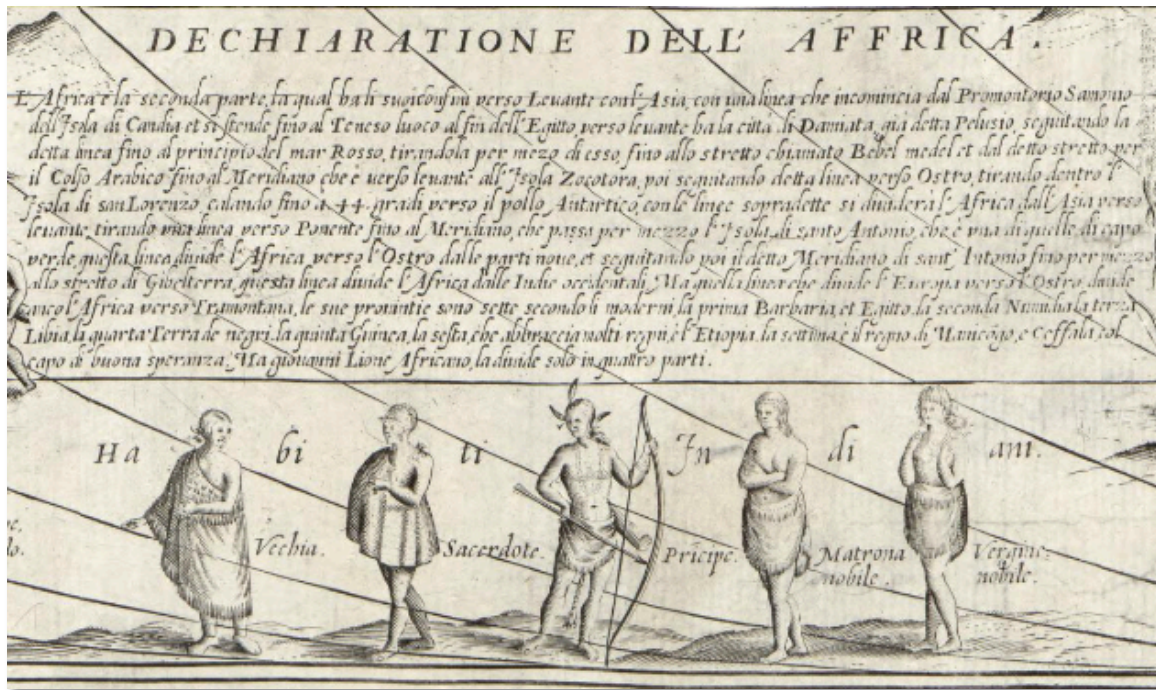 DECHIARATIONE DELL' AFFRICA.
L'Africa è la seconda parte, la qual ha li suoi confini verso Levante con l'Asia, con una linea che incomincia dal Promontorio Samonio
dell'Isola di Candia et si stende fino al Teneso luoco al fin dell'Egitto, verso levante ha la città di Damiata, già detta Pelusio, seguitando la
detta linea fino al principio del mar Rosso, tirandola per mezo di esso, fino allo stretto chiamato Bebel medel et dal detto stretto per
il Colfo Arabico fino al Meridiano che è verso levante all'Isola Zocotora, poi seguitando detta linea verso Ostro, tirando dentro l'
Isola di san Lorenzo, calando fino a 44. gradi verso il pollo Antartico, con le linee sopradette si dividera l'Africa dall'Asia verso
levante, tirando una linea verso Ponente fino al Meridiano, che passa per mezzo l'Isola di santo Antonio, che è una di quelle di capo
verde, questa linea divide l'Africa verso l'Ostro dalle parti nove, et seguitando poi il detto Meridiano di sant'Antonio fino per mezzo
allo stretto di Gibelterra, questa linea divide l'Africa dalle Indie occidentali, Ma quella linea che divide l'Europa verso l'Ostro, divide
anco l'Africa verso Tramontana, le sue provintie sono sette secondo li moderni, la prima Barbaria, et Egitto, la seconda Numidia, la terza
Libia, la quarta Terra de negri, la quinta Guinea, la sesta, che abbraccia molti regni, è l'Etiopia, la settima è il regno di Manicōgo, e Ceffala, col
capo di buona speranza, Ma giovanni Lione Africano, la divide solo in quattro parti.
Ha bi ti In di ani.
Vechia. Sacerdote. Pricipe. Matrona nobile. Vergine nobile.